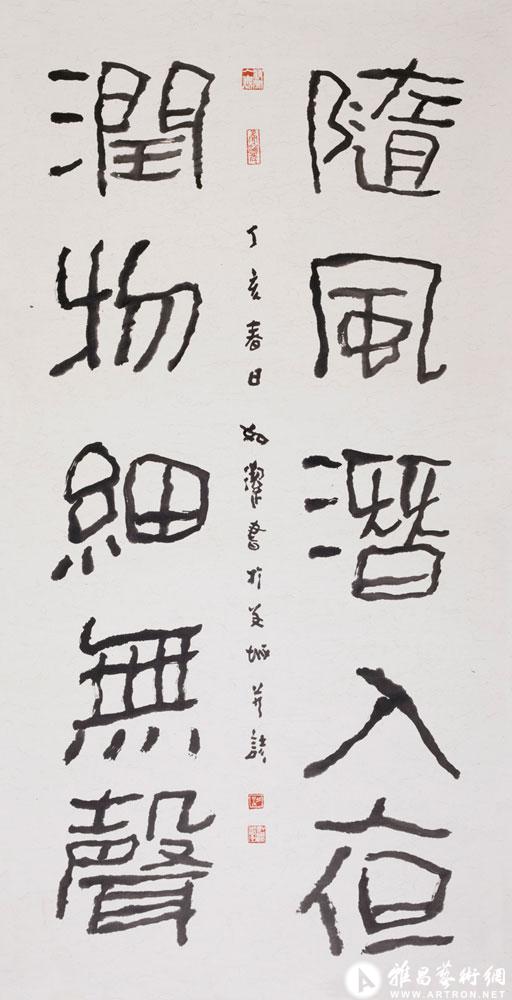 隨風潛入夜
丁亥春日 書於 並讀
潤物細無聲
雅昌藝術網
WWW.ARTRON.NET